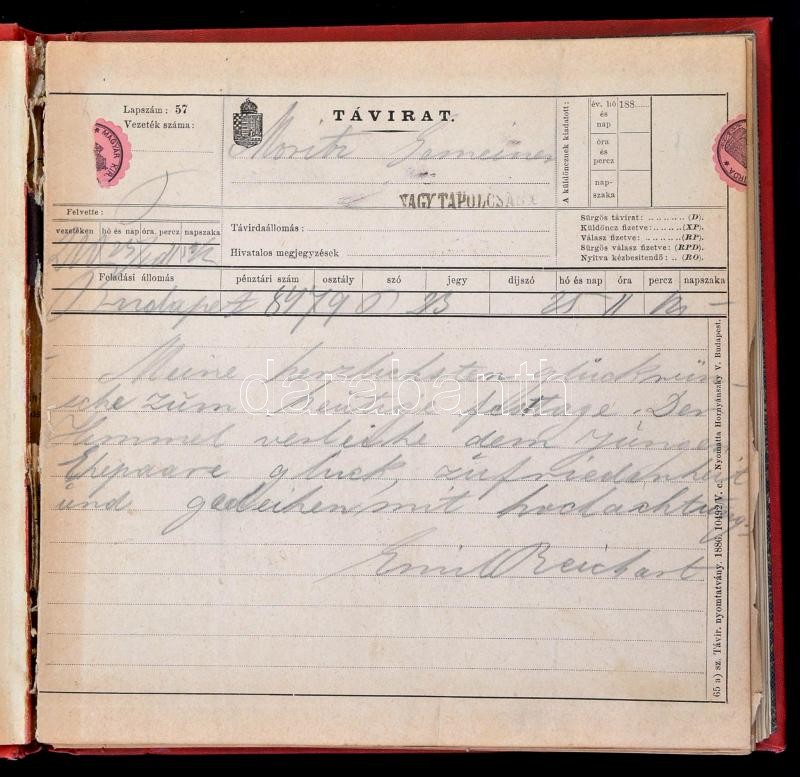 Lapszám: 57
Vezeték száma:
MAGYAR KIR.
TÁVIRAT.
Moritz
NAGY TAPOLCSÁNY
A küldöncznek kiadatott:
év, hó és nap
188......
óra és percz
napszaka
Felvette:
vezetéken hó és nap óra, percz napszaka
Távirdaállomás:
Hivatalos megjegyzések
Sürgös távirat: .. .. .. .. ..(D).
Küldöncz fizetve: .. .. .. ..(XP)
Válasz fizetve: .. .. .. .. ..(RP)
Sürgös válasz fizetve: .. ..(RPD)
Nyitva kézbesitendö .. .. ..(RO).
Feladási állomás pénztári szám osztály szó jegy dijszó hó és nap óra percz napszaka
Budapest 8479 23 25 11
Meine herzlichsten glückwün-
sche zum heutige festtage. Der
Himmel verleihe dem jungen
Ehepaare glück, zufriedenheit
und gedeihen, mit hochachtung
Emil Reichart
darabanth
(65 a) sz. Távir. nyomtatvány. 1886. 10492/V. c. Nyomatta Hornyánszky V. Budapest.